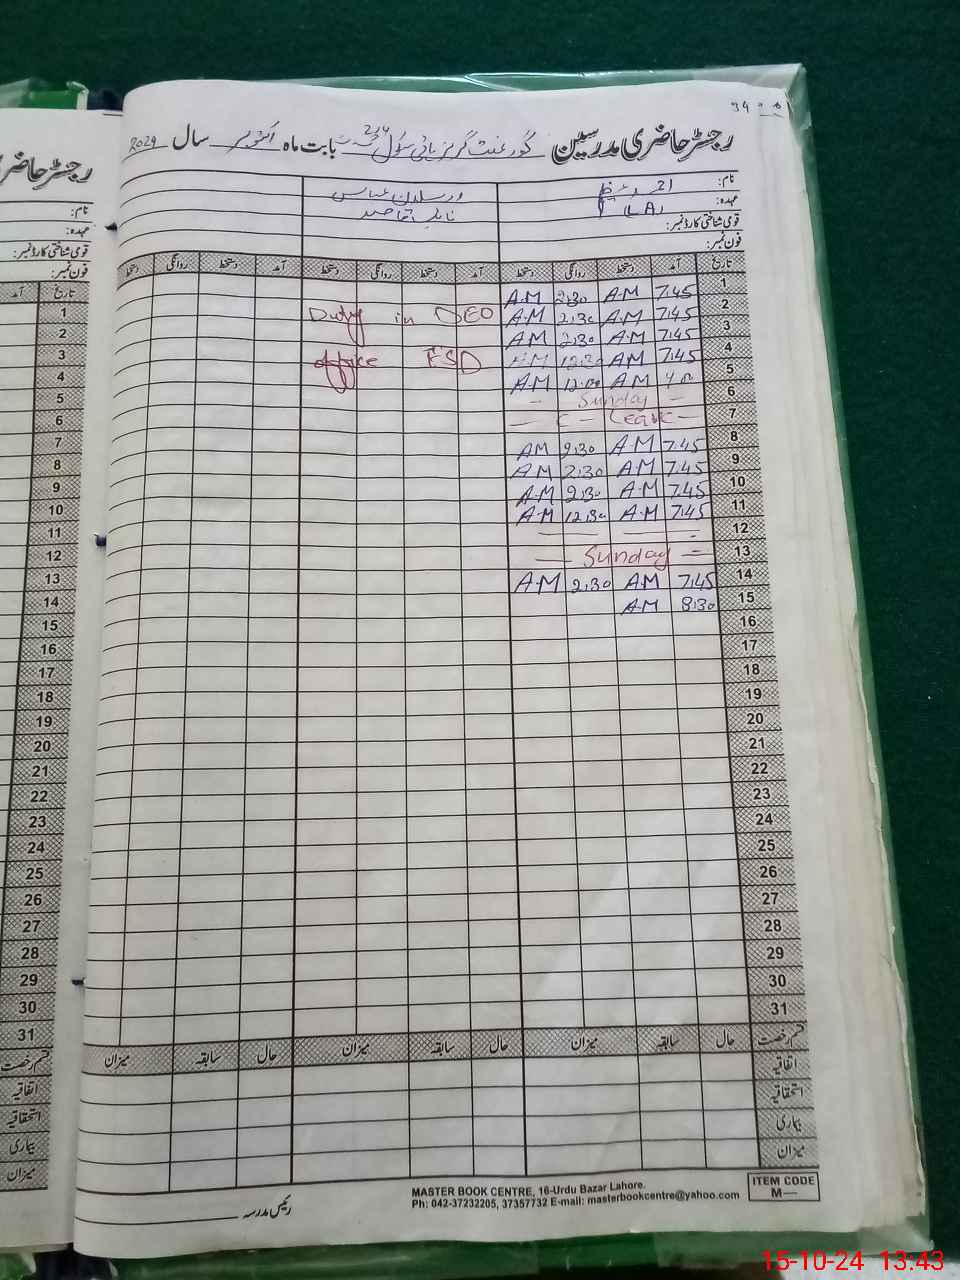 رجسٹر حاضری مدرسین گورنمنٹ گرلز ہائی سکول بابت ماہ اکتوبر سال 2024
نام:
عہدہ: (LA)
قومی شناختی کارڈ نمبر:
فون نمبر:
تاریخ آمد دستخط روانگی دستخط آمد دستخط روانگی دستخط آمد دستخط روانگی دستخط
1 7.45 A.M 2:30 A.M
2 7.45 A.M 2:30 A.M Duty in DEO
3 7.45 A.M 2:30 A.M
4 7.45 AM 12:30 A.M office FSD
5 AM A.M
6 Sunday
7 C - Leave
8 7.45 A.M 2:30 AM
9 7.45 A.M 2:30 AM
10 7.45 A.M 2:30 A.M
11 7.45 A.M 12.30 A.M
12
13 Sunday
14 7.45 A.M 2:30 A.M
15 8:30 A.M
16
17
18
19
20
21
22
23
24
25
26
27
28
29
30
31
قسم رخصت حال سابقہ میزان حال سابقہ میزان حال سابقہ میزان
اتفاقیہ
استحقاقیہ
بیماری
میزان
رئیس مدرسہ
MASTER BOOK CENTRE, 16-Urdu Bazar Lahore.
Ph: 042-37232205, 37357732 E-mail: masterbookcentre@yahoo.com
ITEM CODE
M—
رجسٹر حاضری
نام:
عہدہ:
قومی شناختی کارڈ نمبر:
فون نمبر:
تاریخ آمد
1
2
3
4
5
6
7
8
9
10
11
12
13
14
15
16
17
18
19
20
21
22
23
24
25
26
27
28
29
30
31
قسم رخصت
اتفاقیہ
استحقاقیہ
بیماری
میزان
15-10-24 13:43